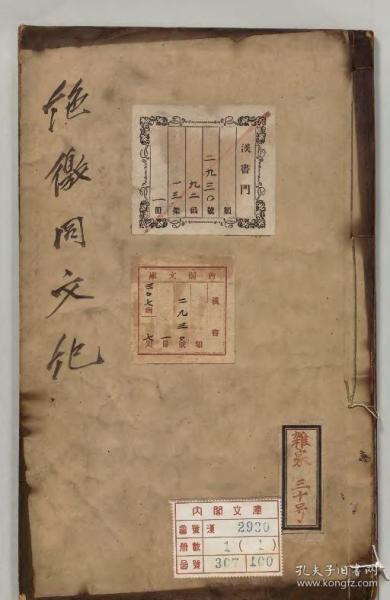 絶徼同文紀
漢書門
類
二九三〇號
九二函
一三架
一冊
內閣文庫
漢書
二九三〇
類
號
冊
一
七
三〇七函
雜家 三十号
内閣文庫
番號 漢 2930
冊數 1 ( 1 )
函號 307 100
孔夫子旧书网
www.kongfz.com